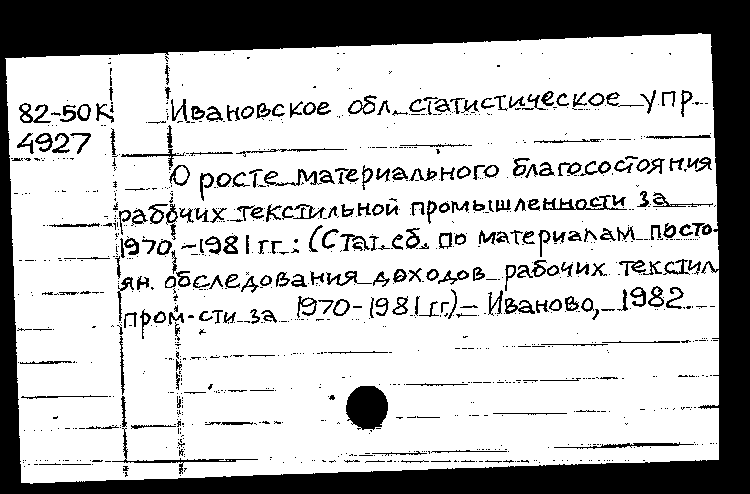 82-50К Ивановское обл. статистическое упр.
4927
О росте материального благосостояния
рабочих текстильной промышленности за
1970-1981 гг.: (Стат. сб. по материалам посто-
ян. обследования доходов рабочих текстил.
пром-сти за 1970-1981 гг.) - Иваново, 1982.